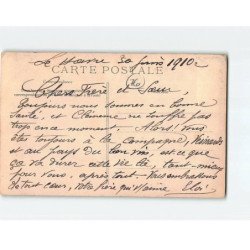 Le Havre 30 Juin 1910
CARTE POSTALE
Chers Frère et Sœur,
Toujours nous sommes en bonne
santé, et Clémence ne souffre pas
trop en ce moment. Alors! vous
êtes toujours à la campagne,
et au pays du bon vin, est ce que
ça va durer cette vie là, tant mieux
pour vous, après tout. Vous embrassons
de tout cœur, votre frère qui vous aime Eloi